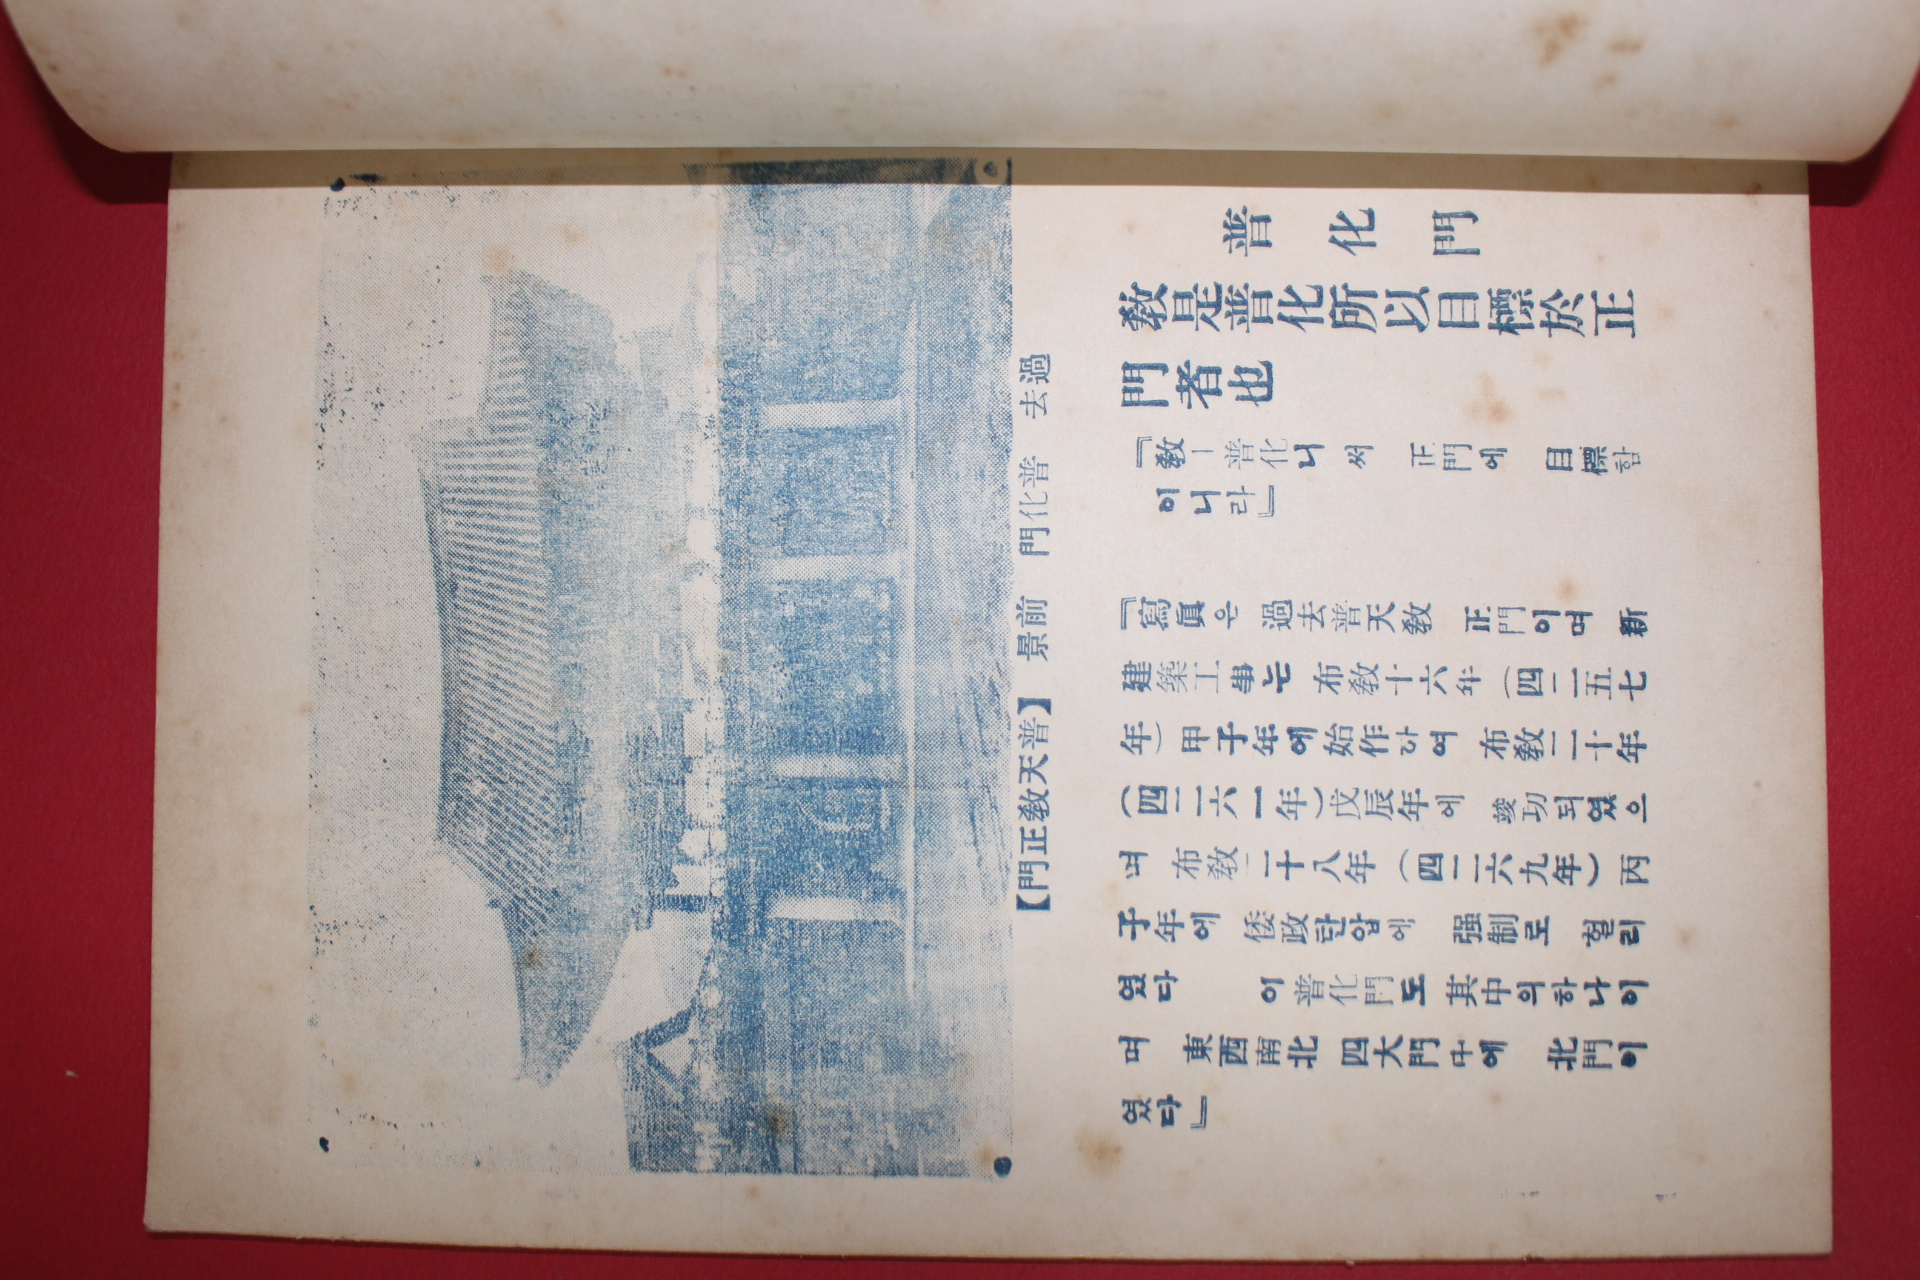 普化門
敎是普化所以目標於正
門者也
『敎ㅣ普化니 써 正門에 目標함
이니라』
『寫眞은 過去普天敎 正門이며 新
建築工事는 布敎十六年 (四二五七
年) 甲子年에 始作하여 布敎二十年
(四二六一年)戊辰年에 竣功되였으
며 布敎二十八年 (四二六九年) 丙
子年에 倭政탄압에 强制로 헐리
였다 이 普化門도 其中의 하나이
며 東西南北 四大門中에 北門이
였다』
過去 普化門 前景 【普天敎正門】